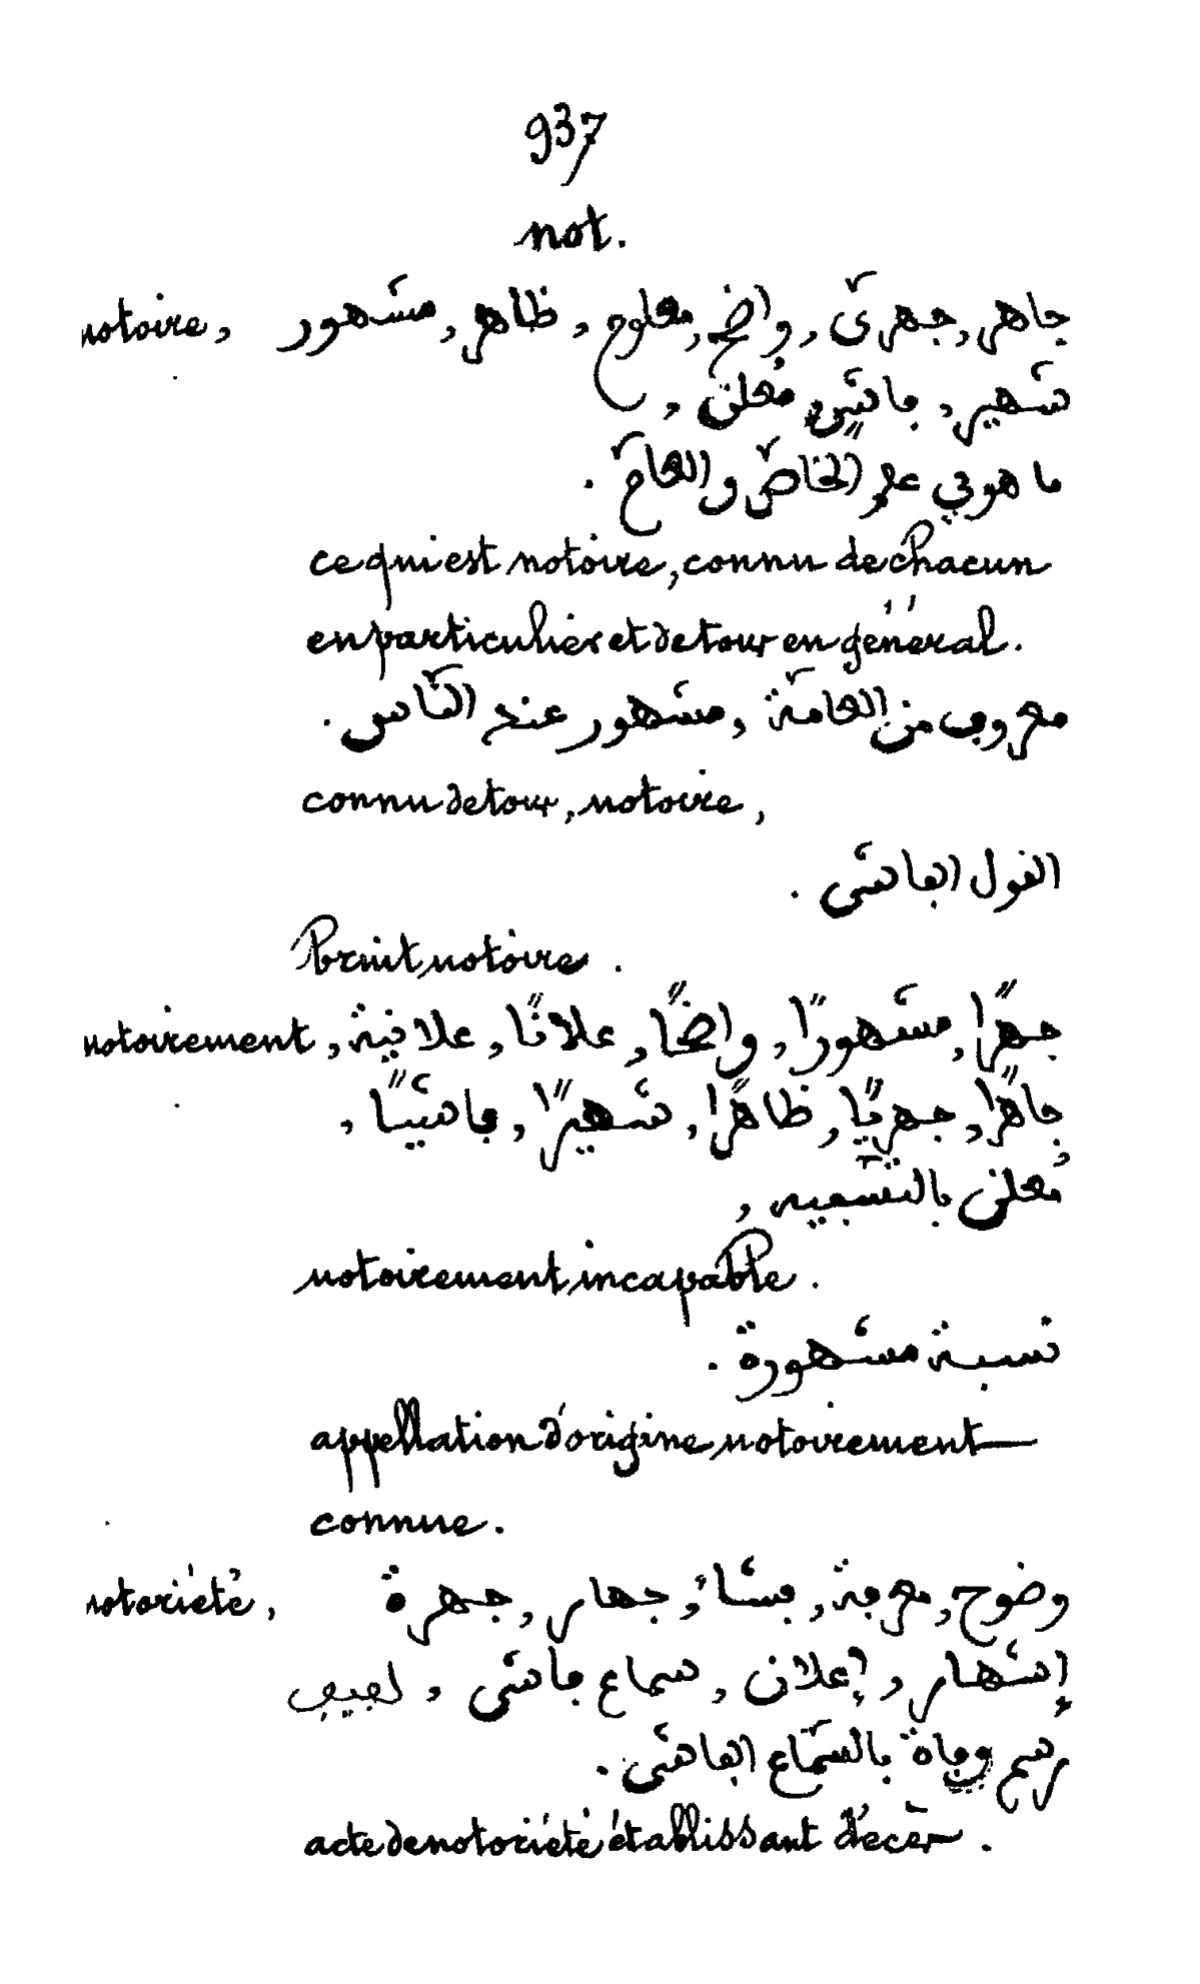 937
not.
notoire, جاهر, جهرى, واضح, معلوم, ظاهر, مشهور
شهير, فاشي, مُعلن,
ما هو في علم الخاصّ والعامّ.
ce qui est notoire, connu de chacun
en particulier et de tous en général.
معروف من العامّة, مشهور عند النّاس.
connu de tous, notoire,
القول الفاشى.
bruit notoire.
notoirement, جهرًا, مشهورًا, واضحًا, علانًا, علانية,
جاهرًا, جهريًا, ظاهرًا, شهيرًا, فاشيًا,
مُعلن بالتسفيه,
notoirement incapable.
نسبة مشهورة.
appellation d'origine notoirement
connue.
notoriété, وضوح, معرفة, فشاءٌ, جهار, جهرة
إشهار, إعلان, سماع فاشى, لفيف
رسم وفاة بالسّماع الفاشى.
acte de notoriété établissant décès.